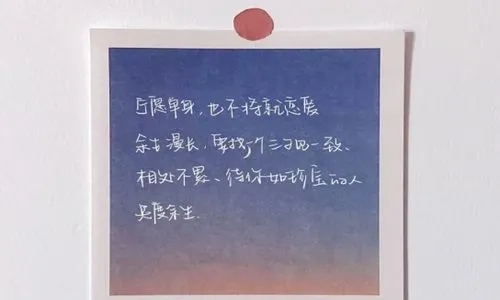 宁愿单身,也不将就恋爱
余生漫长,要找个三观一致、
相处不累、待你如珍宝的人
共度余生.